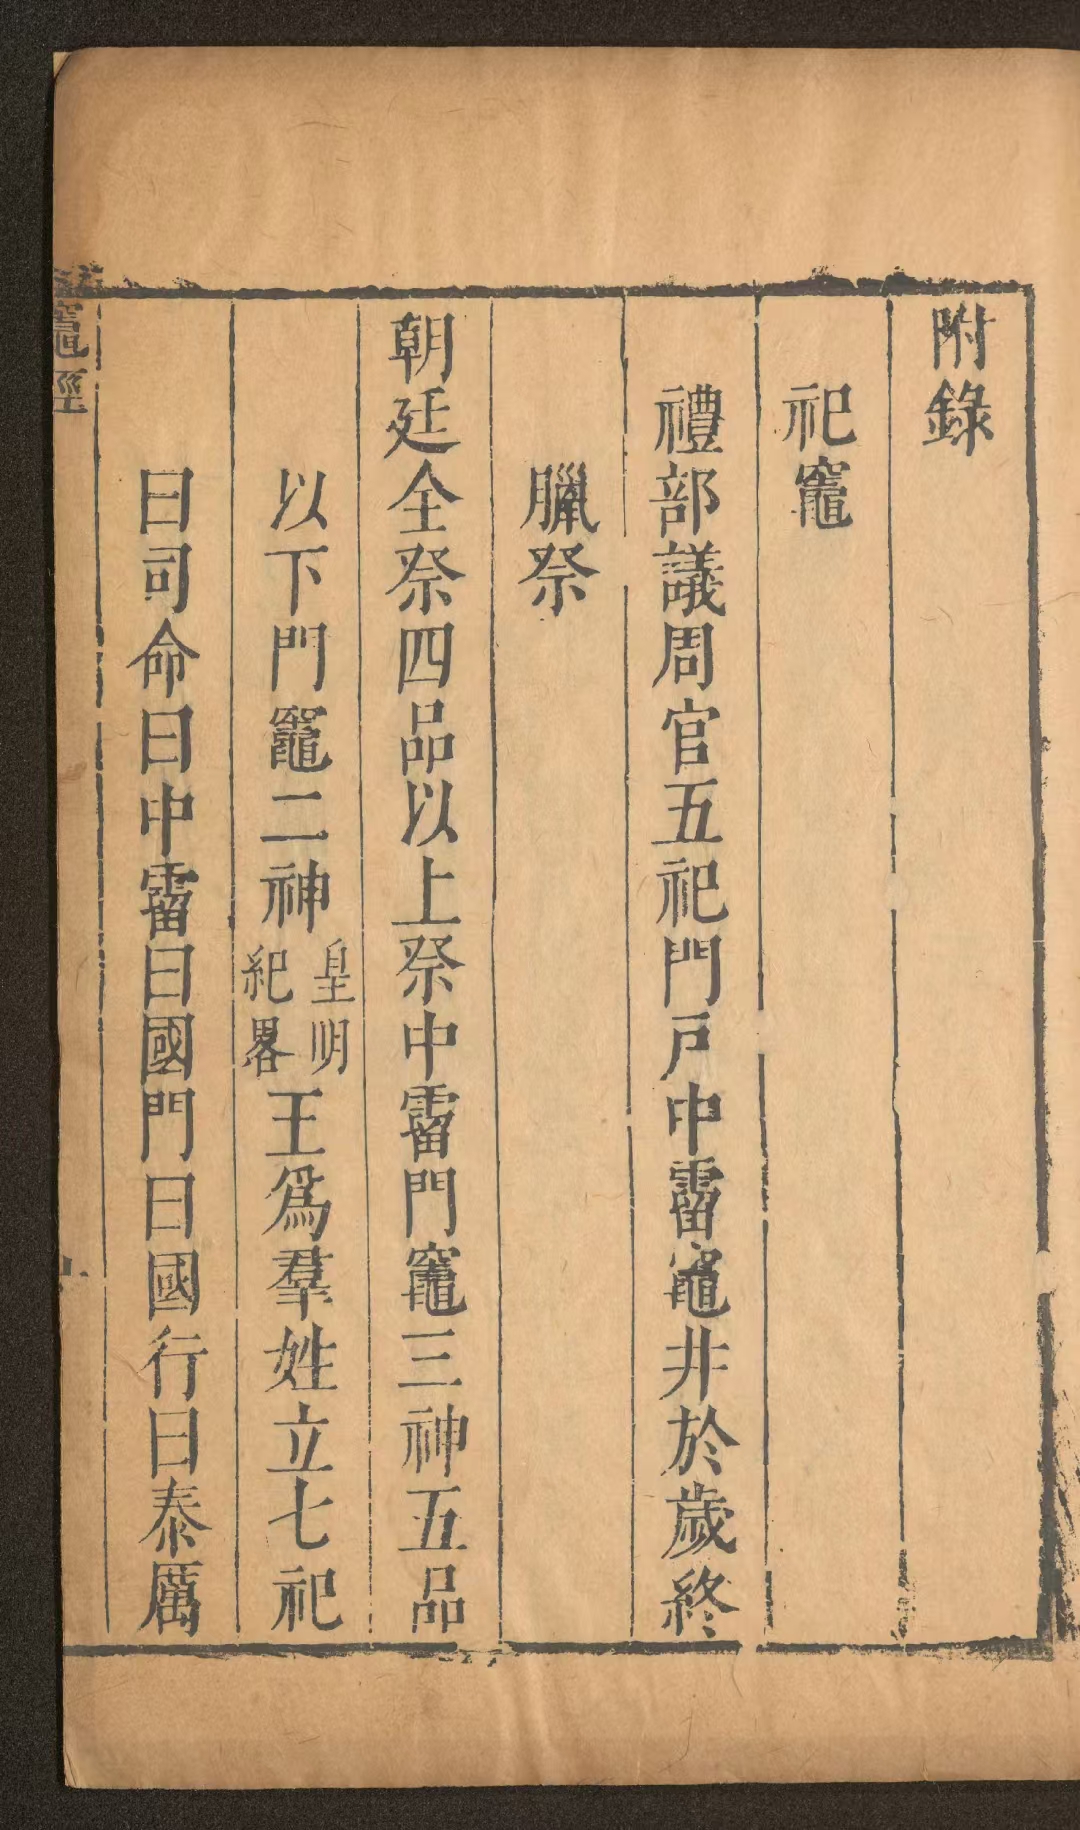 附錄
祀竈
禮部議周官五祀門戶中霤竈井於歲終
臘祭
朝廷全祭四品以上祭中霤門竈三神五品
以下門竈二神皇明紀畧王爲羣姓立七祀
曰司命曰中霤曰國門曰國行曰泰厲
竈經